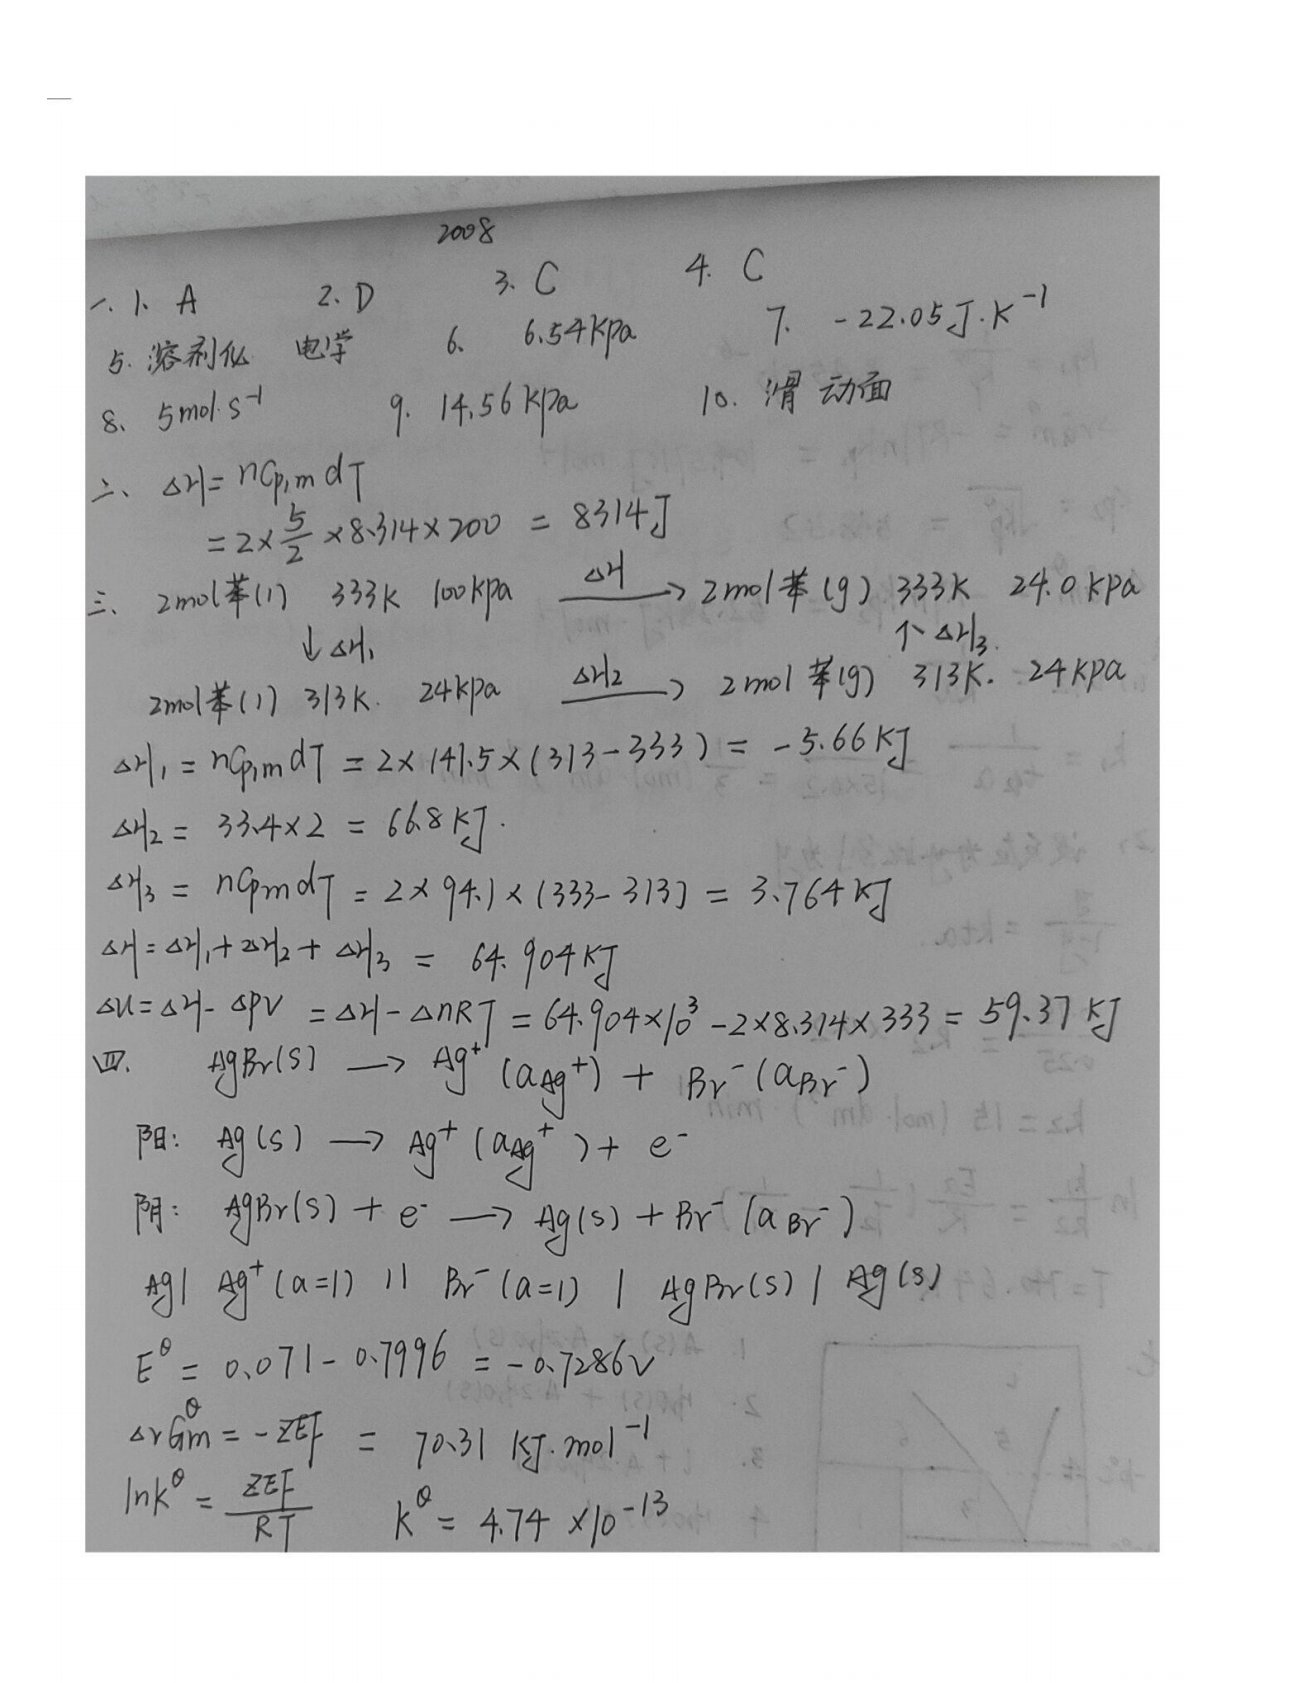 2008
一、1. A 2. D 3. C 4. C
5. 溶剂化 电学 6. 6.54kPa 7. -22.05J·K⁻¹
8. 5mol·s⁻¹ 9. 14.56kPa 10. 滑动面
二、ΔH=nCp,mdT
=2×5/2×8.314×200 = 8314J
三、2mol苯(l) 333K 100kPa ΔH → 2mol苯(g) 333K 24.0kPa
↓ΔH₁ ↑ΔH₃
2mol苯(l) 313K. 24kPa ΔH₂ → 2mol苯(g) 313K. 24kPa
ΔH₁ = nCp,mdT = 2×141.5×(313-333) = -5.66KJ
ΔH₂ = 33.4×2 = 66.8KJ.
ΔH₃ = nCpmdT = 2×94.1×(333-313) = 3.764KJ
ΔH=ΔH₁+ΔH₂+ΔH₃ = 64.904KJ
ΔU=ΔH-ΔPV =ΔH-ΔnRT=64.904×10³-2×8.314×333=59.37KJ
四. AgBr(s) → Ag⁺(aAg⁺) + Br⁻(aBr⁻)
阳: Ag(s) → Ag⁺(aAg⁺)+e⁻
阴: AgBr(s)+e⁻ → Ag(s)+Br⁻(aBr⁻)
Ag| Ag⁺(a=1) || Br⁻(a=1) | AgBr(s) | Ag(s)
E^θ = 0.071-0.7996 = -0.7286V
ΔrGm^θ = -ZEF = 70.31 KJ·mol⁻¹
lnK^θ = ZEF/RT K^θ = 4.74×10⁻¹³